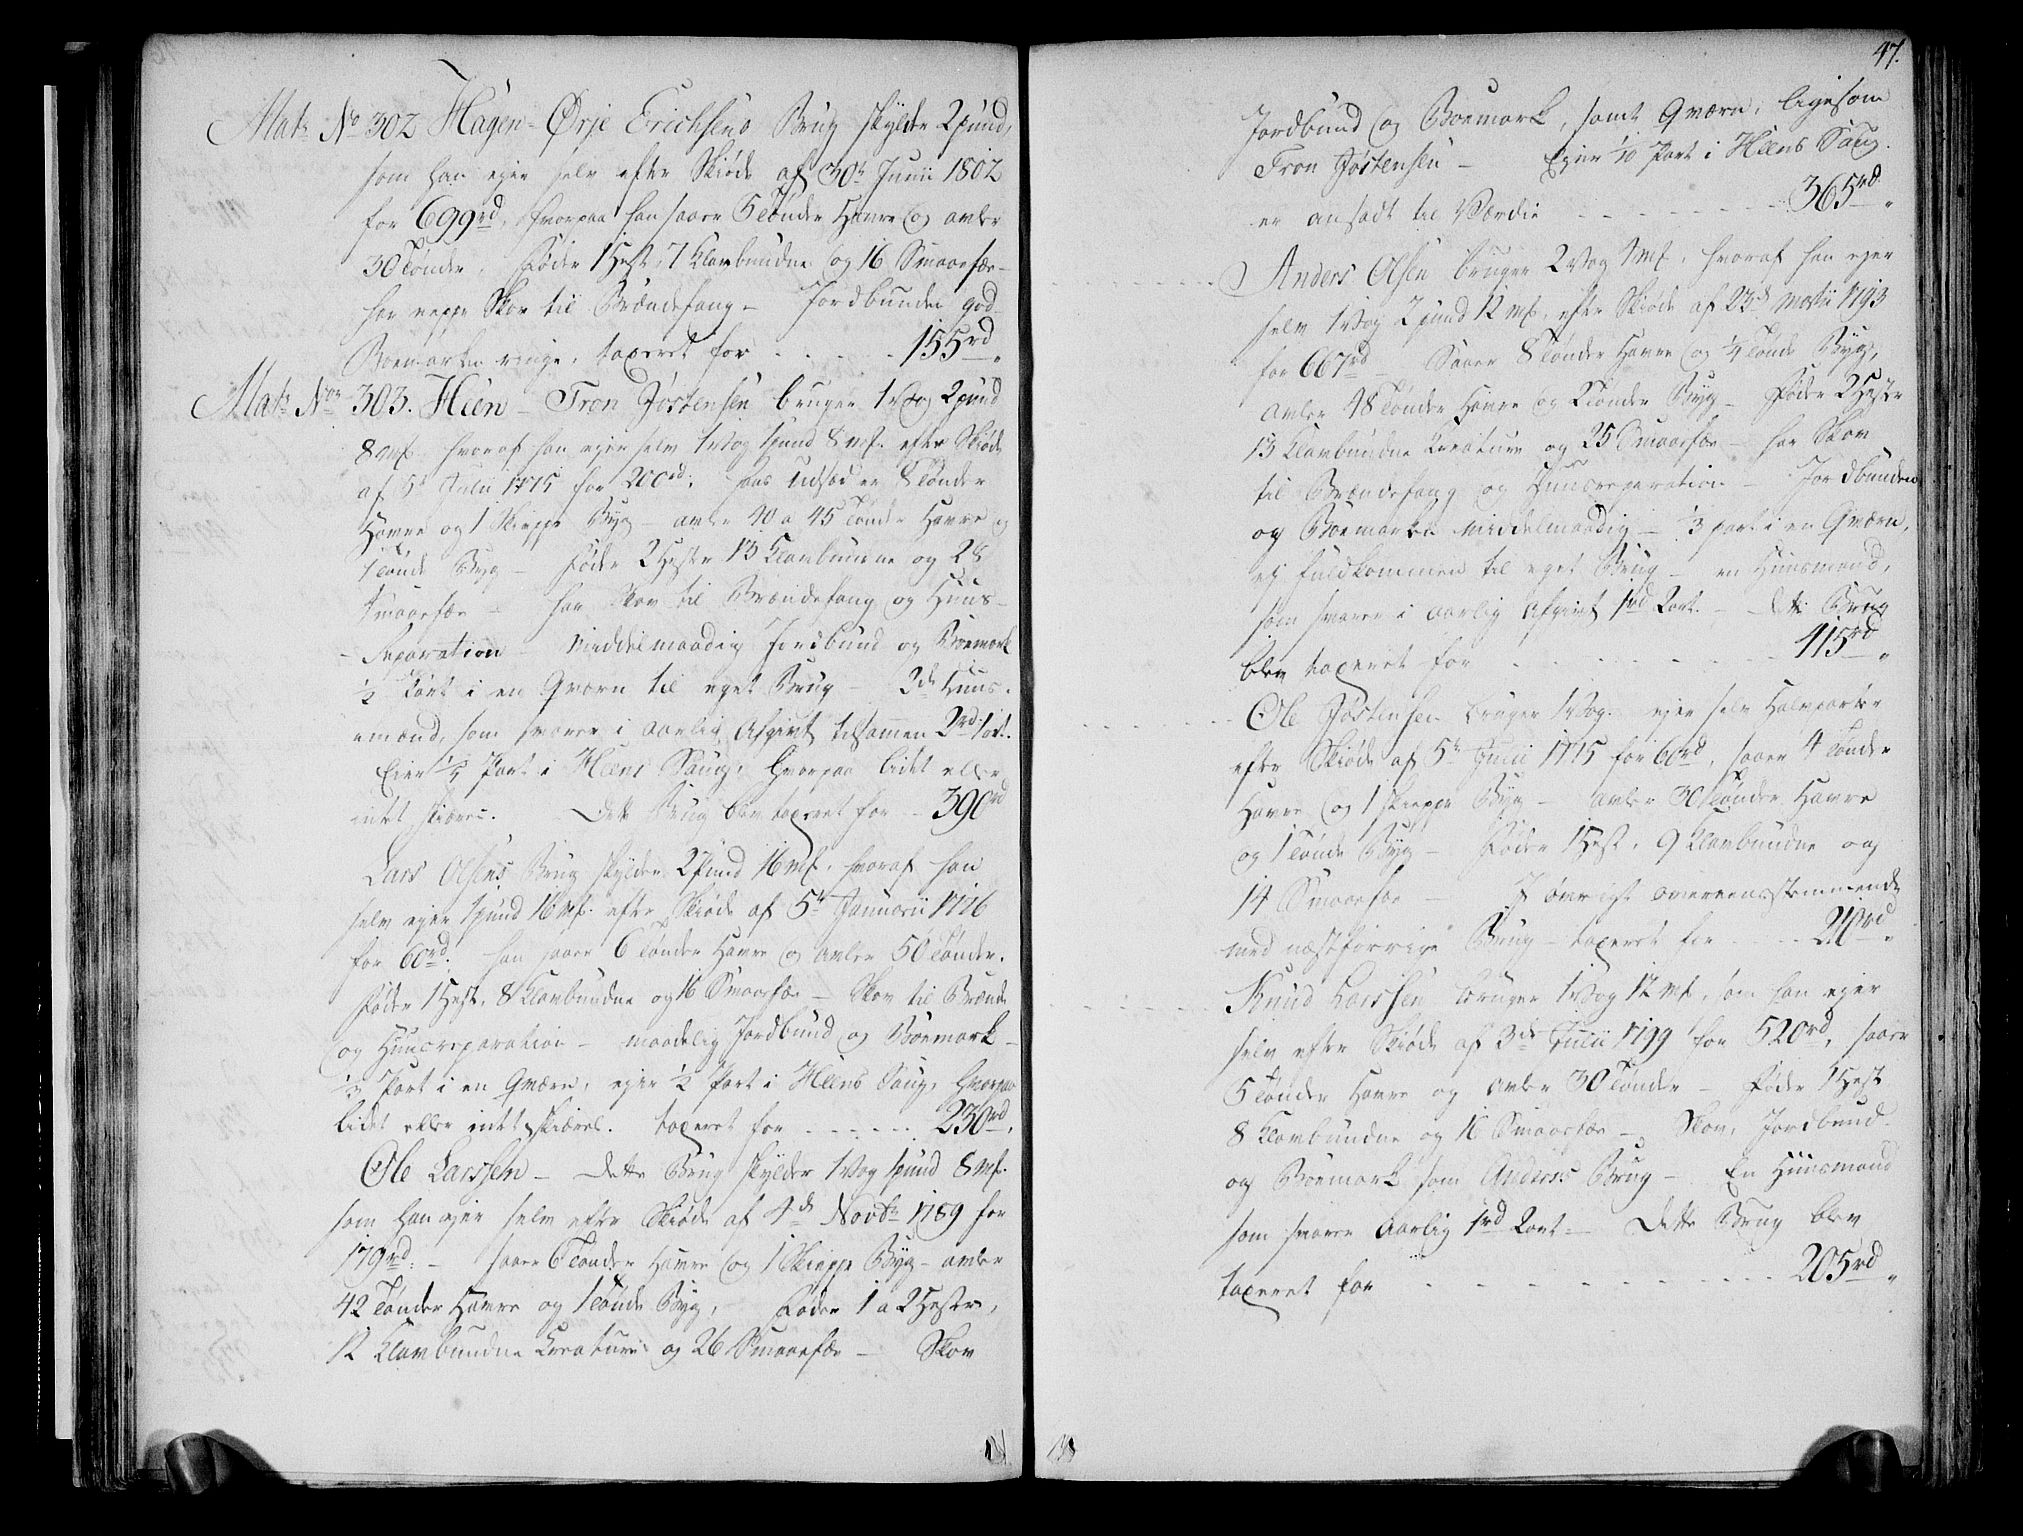 Matr No 302 Hagen - Ørje Erichsens Brug skylder 2 pund,
som han ejer selv efter Skiøde af 30te Junii 1802
for 699rd, hvorpaa han saaer 5 Tønder Havre og avler
30 Tønder, Føder 1 Hest, 7 Klavbundne og 16 Smaaefæe -
har neppe Skov til Brændefang - Jordbunden god
Boemarken ringe, taxeret for - - - - 155rd„
Matr Nor 303. Hien - Tron Jøstensen bruger 1 Vog 2 pund
8 mk, hvoraf han ejer selv 1 Vog 1 pund 8 mk. efter Skiøde
af 5te Julii 1775 for 200rd; hans Udsæd er 8 Tønder
Havre og 1 Skieppe Byg - avler 40 a 45 Tønder Havre og
1 Tønde Byg - føder 2 Heste 13 Klavbundne og 28
Smaaefæe - har Skov til Brændefang og Huus-
-Reparation - middelmaadig Jordbund og Boemark
1/2 Part i en Qværn til eget Brug - 2de Huus-
mænd, som svarer i aarlig Afgivt tilsammen 2rd 1 ort.
Eier 1/5 Part i Heens Saug, hvorpaa lidet eller
intet skiæres. Dette Brug blev taxeret for - 390rd
Lars Olsens Brug skylder 2 Pund 16 mk, hvoraf han
selv ejer 1 pund 16 mk. efter Skiøde af 5te Januarii 1776
for 60rd; han saaer 6 Tønder Havre og avler 50 Tønder.
Føder 1 Hest, 8 Klavbundne og 16 Smaaefæe - Skov til Brænde
og Huusreparation - maadelig Jordbund og Boemark -
1/3 Part i en Qværn, ejer 1/2 Part i Heens Saug, hvorpaa
lidet eller intet skiæres. taxeret for - - - - - - 230rd„
Ole Larssen - Dette Brug skylder 1 Vog 1 pund 8 mk.
som han ejer selv efter Skiøde af 4de Novbr 1789 for
179rd: - saaer 6 Tønder Havre og 1 Skieppe Byg - avler
42 Tønder Havre og 1 Tønde Byg, Føder 1 a 2 Heste,
12 Klavbundne Creature og 26 Smaaefæe - Skov
47.
Jordbund og Boemark, samt Qværn, ligesom
Tron Jøstensen - Ejer 1/10 Part i Heens Saug.
er ansadt til Værdie - - - - - - - - 365rd„
Anders Olsen bruger 2 Vog 1 mk, hvoraf han ejer
selv 1 Vog 2 pund 12 mk, efter Skiøde af 23de Martii 1793
for 667rd - Saaer 8 Tønder Havre og 1/4 Tønde Byg,
avler 48 Tønder Havre og 2 Tønder Byg - Føder 2 Heste
13 Klavbundne Creature og 25 Smaaefæe - har Skov
til Brændefang og Huusreparation - Jordbunden
og Boemarken middelmaadig - 1/3 part i en Qværn,
ej fuldkommen til eget Brug - en Huusmand,
som svarer i aarlig Afgivt 1rd 2 ort. - Dette Brug
blev taxeret for - - - - - - - - 415rd„
Ole Jøstensen bruger 1 Vog. ejer selv Halvparten
efter Skiøde af 5te Julii 1775 for 60rd, saaer 4 Tønder
Havre og 1 skieppe Byg - avler 30 Tønder Havre
og 1 Tønde Byg - Føder 1 Hest, 9 Klavbundne og
14 Smaaefæe - I øvrigt overeensstemmende
med næstforrige Brug - taxeret for - - - - 210rd„
Knud Larssen bruger 1 Vog 12 mk, som han ejer
selv efter Skiøde af 3de Julii 1799 for 520rd, saaer
5 Tønder Havre og avler 30 Tønder - føder 1 Hest
8 Klavbundne og 16 Smaaefæe - Skov, Jordbund
og Boemark som Anders's Brug - En Huusmand
som svarer aarlig 1rd 2 ort - Dette Brug blev
taxeret for - - - - - - - - - 205rd„